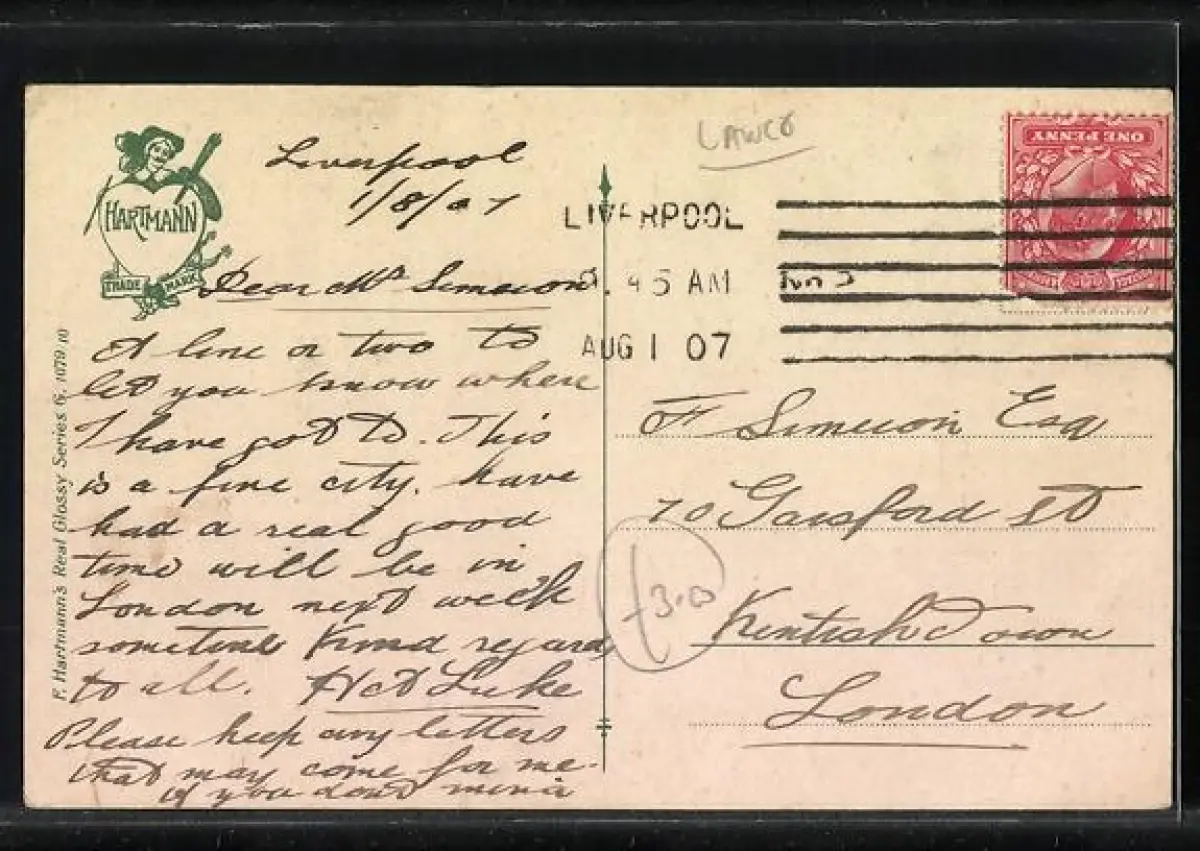 LAWCO
ONE PENNY
HARTMANN
TRADE MARK
Liverpool
1/8/07
LIVERPOOL
.45 AM
AUG 1 07
Dear Mrs Simeson
A line or two to
let you know where
I have got to. This
is a fine city. have
had a real good
time will be in
London next week
sometime Kind regards
to all. Luke
Please keep any letters
that may come for me.
if you dont mind
F. Hartmann's Real Glossy Series G. 1079.10
F Esq
70 Gaisford St
£3.00
Kentish Town
London